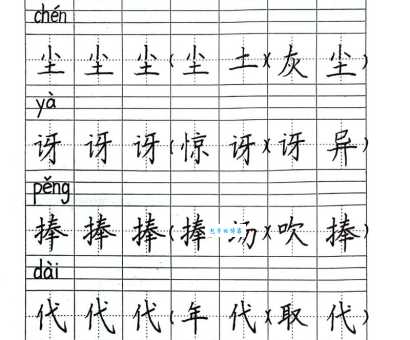 chén
尘 尘 尘 (尘 土)(灰 尘)
yà
讶 讶 讶 (惊 讶)(讶 异)
pěng
捧 捧 捧 (捧 汤)(吹 捧)
dài
代 代 代 (年 代)(取 代)